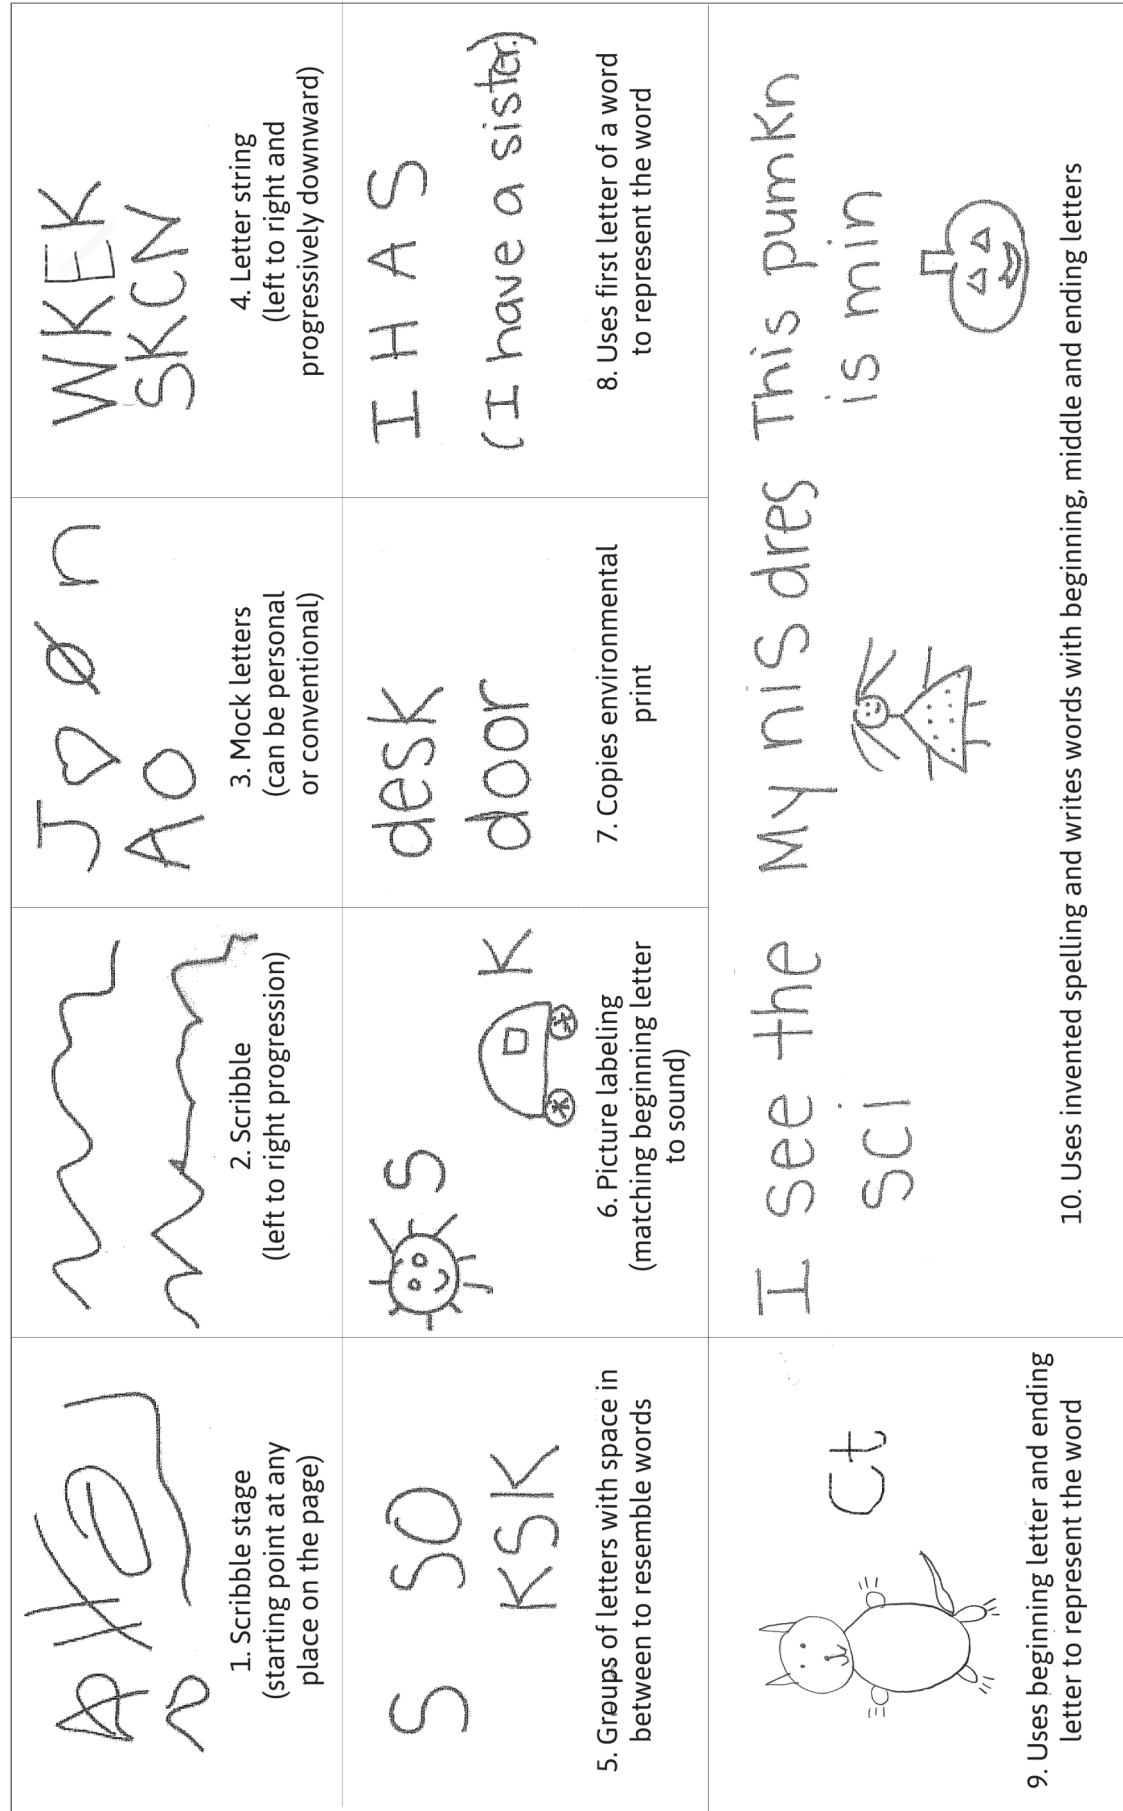 1. Scribble stage
(starting point at any
place on the page)
2. Scribble
(left to right progression)
J ♡ Ø n
A O
3. Mock letters
(can be personal
or conventional)
WKEK
SKCN
4. Letter string
(left to right and
progressively downward)
S SO
KSK
5. Groups of letters with space in
between to resemble words
S
K
6. Picture labeling
(matching beginning letter
to sound)
desk
door
7. Copies environmental
print
I H A S
(I have a sister.)
8. Uses first letter of a word
to represent the word
Ct
9. Uses beginning letter and ending
letter to represent the word
I see the
sci
My nis dres
This pumkn
is min
10. Uses invented spelling and writes words with beginning, middle and ending letters